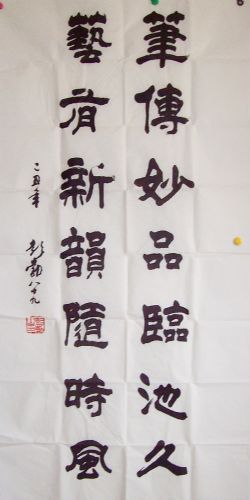 筆傳妙品臨池久
藝有新韻隨時風
己丑年 彭勃 八十九